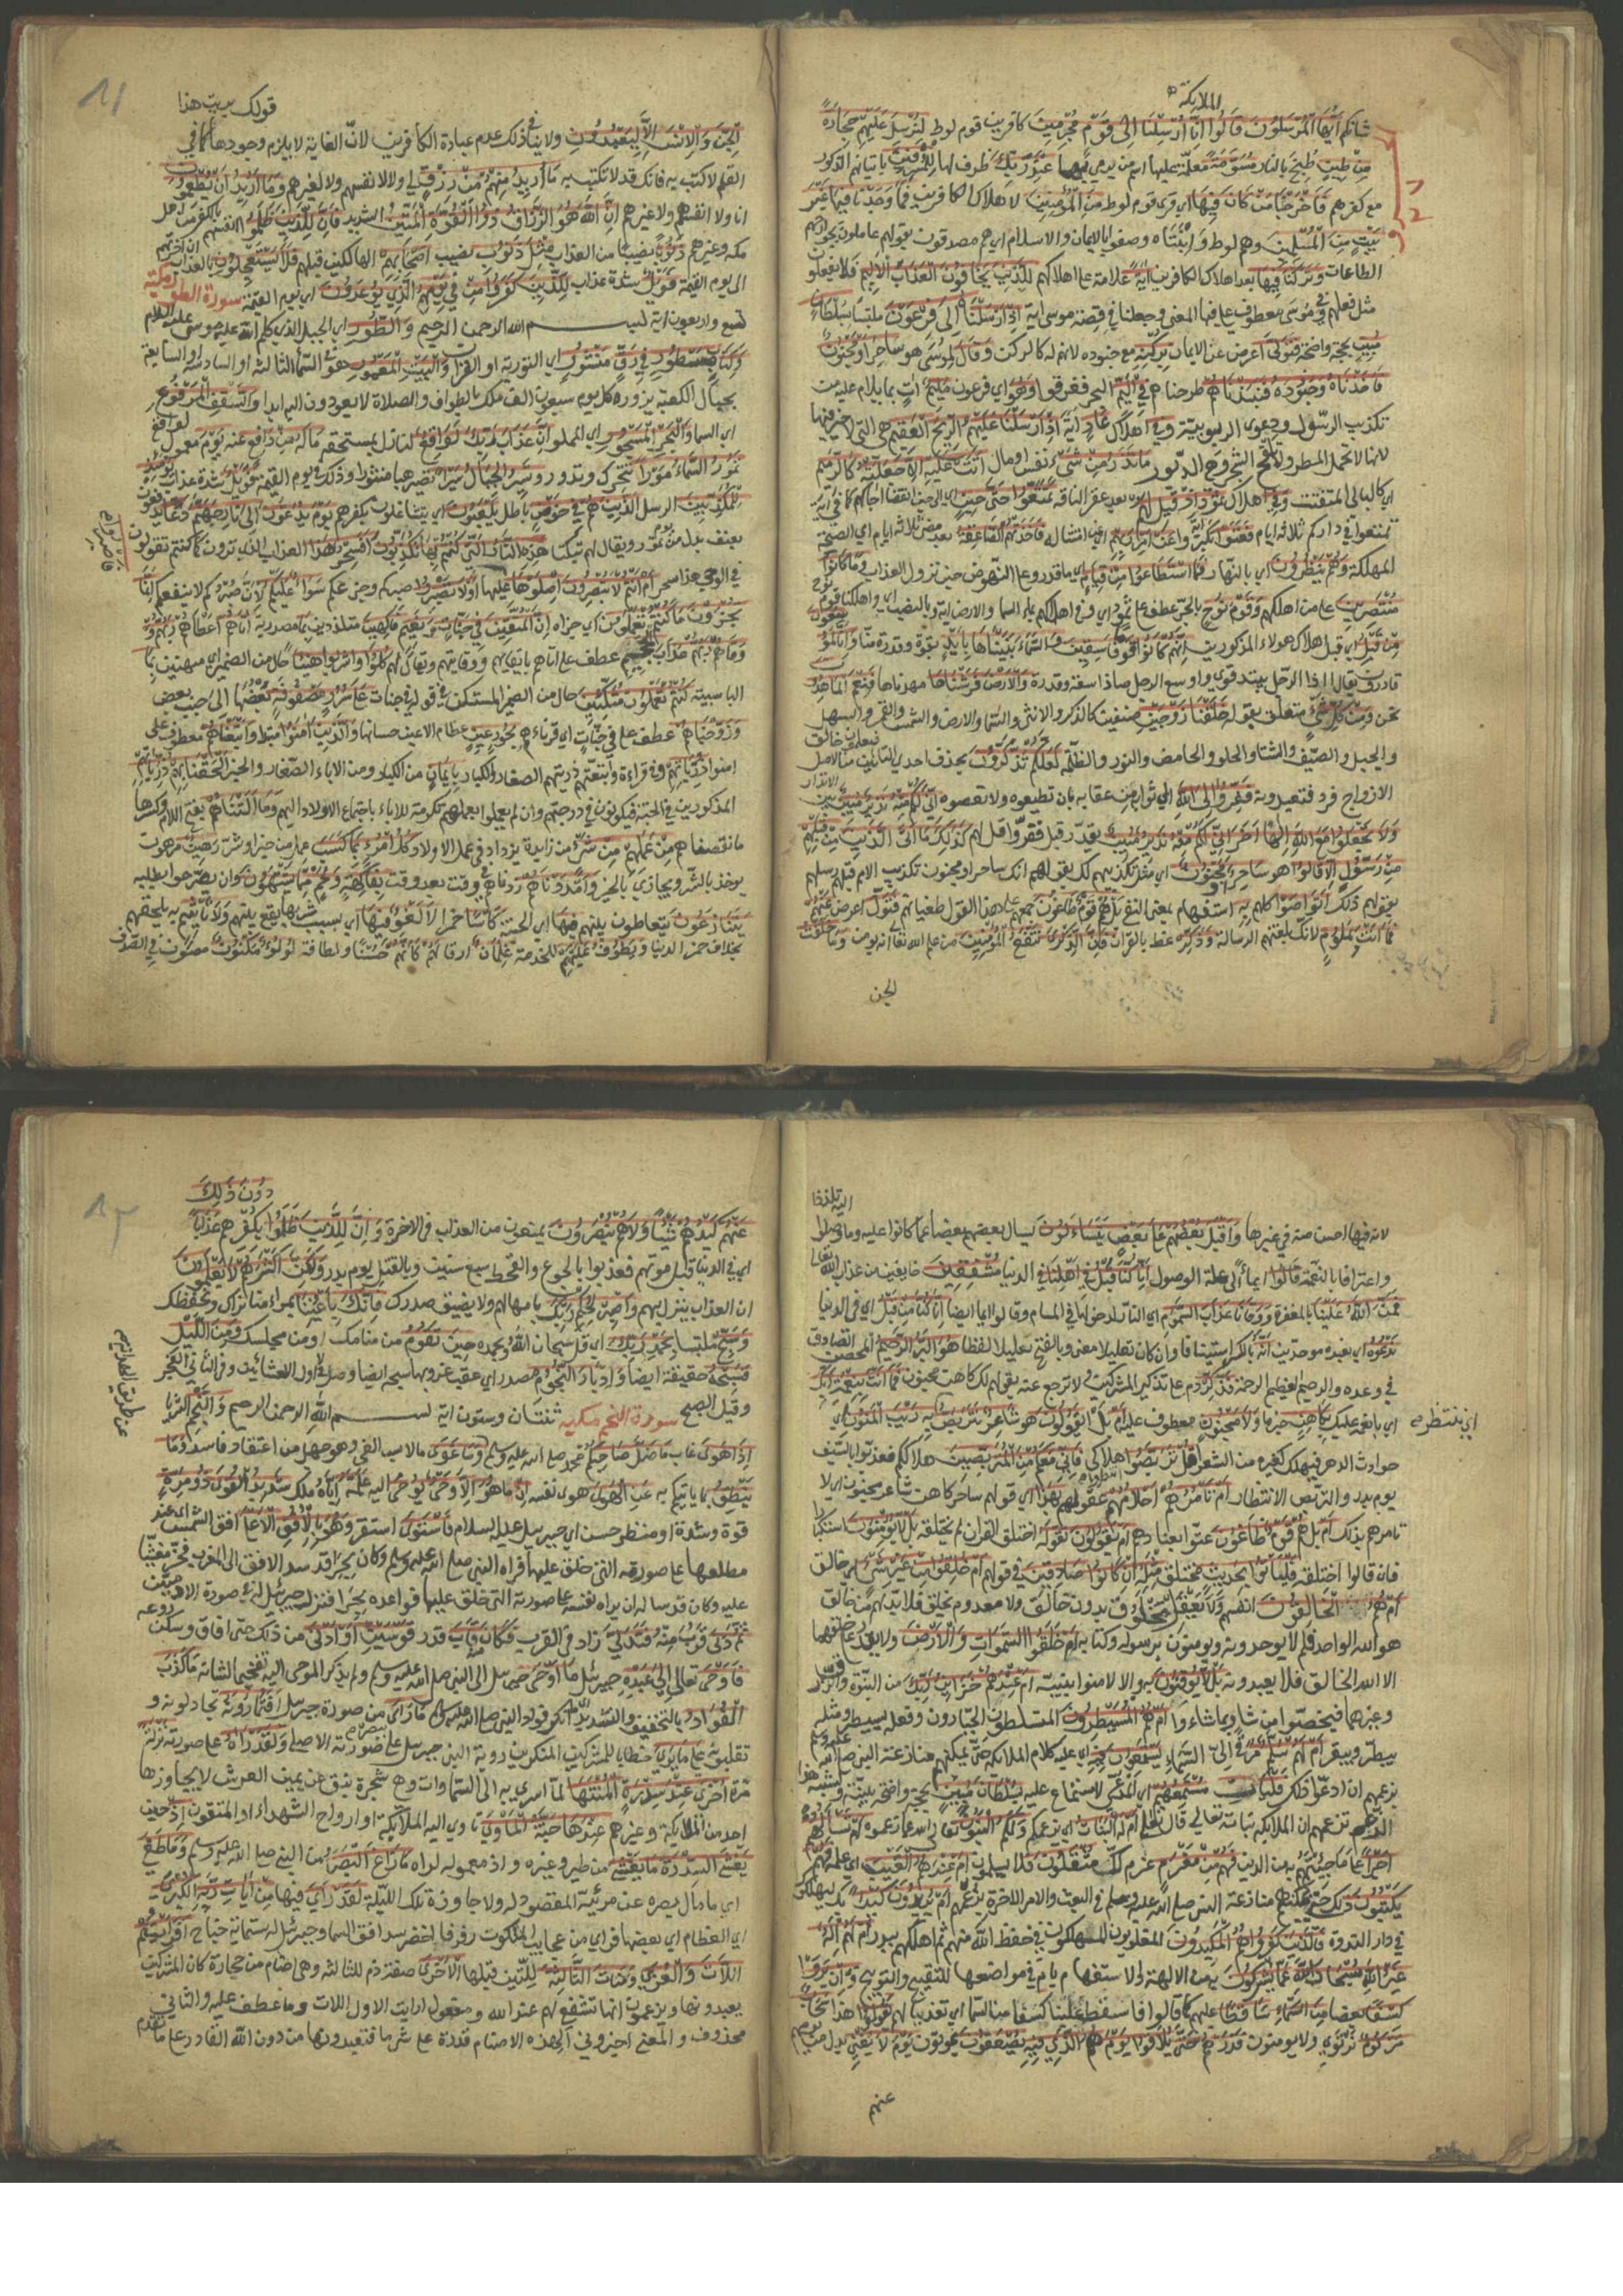 الملائكة
شانكم أَيُّهَا الْمُرْسَلُونَ قَالُوا إِنَّا أُرْسِلْنَا إِلَى قَوْمٍ مُجْرِمِينَ كافرين قوم لوط لِنُرْسِلَ عَلَيْهِمْ حِجَارَةً
مِنْ طِينٍ طبخ بالنار مُسَوَّمَةً معلّمة عليها اسم من يرمى بها عِنْدَ رَبِّكَ ظرف لها لِلْمُسْرِفِينَ باتيانهم الذكور
مع كفرهم فَأَخْرَجْنَا مَنْ كَانَ فِيهَا اي قرى قوم لوط مِنَ الْمُؤْمِنِينَ لاهلاك الكافرين فَمَا وَجَدْنَا فِيهَا غَيْرَ
بَيْتٍ مِنَ الْمُسْلِمِينَ وهم لوط وابنتاه وصفوا بالايمان والاسلام اي هم مصدقون بقلوبهم عاملون بجوارحهم
الطاعات وَتَرَكْنَا فِيهَا بعد اهلاك الكافرين آيَةً علامة على اهلاكهم لِلَّذِينَ يَخَافُونَ الْعَذَابَ الْأَلِيمَ فلا يفعلو
مثل فعلهم وَفِي مُوسَى معطوف على فيها المعنى وجعلنا في قصة موسى اية إِذْ أَرْسَلْنَاهُ إِلَى فِرْعَوْنَ ملتبسا بِسُلْطَانٍ
مُبِينٍ بحجة واضحة فَتَوَلَّى اعرض عن الايمان بِرُكْنِهِ مع جنوده لانهم له كالركن وَقَالَ لموسى هو سَاحِرٌ أَوْ مَجْنُونٌ
فَأَخَذْنَاهُ وَجُنُودَهُ فَنَبَذْنَاهُمْ طرحناهم فِي الْيَمِّ البحر فغرقوا وَهُوَ اي فرعون مُلِيمٌ ات بما يلام عليه من
تكذيب الرسول ودعوى الربوبية وَفِي اهلاك عَادٍ آية إِذْ أَرْسَلْنَا عَلَيْهِمُ الرِّيحَ الْعَقِيمَ هي التي لا خير فيها
لانها لا تحمل المطر ولا تلقح الشجر وهي الدبور مَا تَذَرُ مِنْ شَيْءٍ نفس او مال أَتَتْ عَلَيْهِ إِلَّا جَعَلَتْهُ كَالرَّمِيمِ
اي كالبالي المتفتت وَفِي اهلاك ثَمُودَ إِذْ قِيلَ لَهُمْ بعد عقر الناقة تَمَتَّعُوا حَتَّى حِينٍ اي الى حين انقضا اجالكم كما في اية
تمتعوا في داركم ثلاثة ايام فَعَتَوْا تكبروا عَنْ أَمْرِ رَبِّهِمْ اي عن امتثاله فَأَخَذَتْهُمُ الصَّاعِقَةُ بعد مضى ثلاثة ايام اي الصيحة
المهلكة وَهُمْ يَنْظُرُونَ اي بالنهار فَمَا اسْتَطَاعُوا مِنْ قِيَامٍ اي ما قدروا على النهوض حين نزول العذاب وَمَا كَانُوا
مُنْتَصِرِينَ على من اهلكهم وَقَوْمَ نُوحٍ بالجر عطف على ثمود اي وفي اهلاكهم بماء السما والارض اية وبالنصب اي واهلكنا قوم نوح
مِنْ قَبْلُ اي قبل اهلاك هولاء المذكورين إِنَّهُمْ كَانُوا قَوْمًا فَاسِقِينَ وَالسَّمَاءَ بَنَيْنَاهَا بِأَيْدٍ بقوة وقدرة منا وَإِنَّا لَمُوسِعُونَ
قادرون يقال اد الرجل يئيد قوي واوسع الرجل صار ذا سعة وقدرة وَالْأَرْضَ فَرَشْنَاهَا مهدناها فَنِعْمَ الْمَاهِدُونَ
نحن وَمِنْ كُلِّ شَيْءٍ متعلق بقوله خَلَقْنَا زَوْجَيْنِ صنفين كالذكر والانثى والسما والارض والشمس والقمر والسهل
والجبل والصيف والشتا والحلو والحامض والنور والظلمة لَعَلَّكُمْ تَذَكَّرُونَ بحذف احدى التائين من الاصل فتعلمون ان خالق
الازواج فرد فتعبدونه فَفِرُّوا إِلَى اللَّهِ اي ثوابه من عقابه بان تطيعوه ولا تعصوه إِنِّي لَكُمْ مِنْهُ نَذِيرٌ مُبِينٌ بين الانذار
وَلَا تَجْعَلُوا مَعَ اللَّهِ إِلَهًا آخَرَ إِنِّي لَكُمْ مِنْهُ نَذِيرٌ مُبِينٌ يقدر قبل ففروا قل لهم كَذَلِكَ مَا أَتَى الَّذِينَ مِنْ قَبْلِهِمْ
مِنْ رَسُولٍ إِلَّا قَالُوا هو سَاحِرٌ أَوْ مَجْنُونٌ اي مثل تكذيبهم لك بقولهم انك ساحر او مجنون تكذيب الامم قبلهم رسلهم
بقولهم ذلك أَتَوَاصَوْا كلهم بِهِ استفهام بمعنى النفي بَلْ هُمْ قَوْمٌ طَاغُونَ جمعهم على هذا القول طغيانهم فَتَوَلَّ اعرض عَنْهُمْ
فَمَا أَنْتَ بِمَلُومٍ لانك بلغتهم الرسالة وَذَكِّرْ عظ بالقران فَإِنَّ الذِّكْرَى تَنْفَعُ الْمُؤْمِنِينَ من علم الله تعالى انه يومن وَمَا خَلَقْتُ
الجن
قولك بريت هذا
الْجِنَّ وَالْإِنْسَ إِلَّا لِيَعْبُدُونِ ولا ينافي ذلك عدم عبادة الكافرين لان الغاية لا يلزم وجودها كما في
القلم لاكتب به فانك قد لا تكتب به مَا أُرِيدُ مِنْهُمْ مِنْ رِزْقٍ لي ولا لانفسهم ولا لغيرهم وَمَا أُرِيدُ أَنْ يُطْعِمُونِ
انا ولا انفسهم ولا غيرهم إِنَّ اللَّهَ هُوَ الرَّزَّاقُ ذُو الْقُوَّةِ الْمَتِينُ الشديد فَإِنَّ لِلَّذِينَ ظَلَمُوا انفسهم بالكفر من اهل
مكه وغيرهم ذَنُوبًا نصيبا من العذاب مِثْلَ ذَنُوبِ نصيب أَصْحَابِهِمْ الهالكين قبلهم فَلَا يَسْتَعْجِلُونِ بالعذاب ان اخرتهم
الى يوم القيمة فَوَيْلٌ شدة عذاب لِلَّذِينَ كَفَرُوا مِنْ في يَوْمِهِمُ الَّذِي يُوعَدُونَ اي يوم القيمة سورة الطور مكية
تسع واربعون اية بسم الله الرحمن الرحيم وَالطُّورِ اي الجبل الذي كلم الله عليه موسى عليه السلام
وَكِتَابٍ مَسْطُورٍ فِي رَقٍّ مَنْشُورٍ اي التورية او القران وَالْبَيْتِ الْمَعْمُورِ هو في السما الثالثة او السادسة او السابعة
بحيال الكعبة يزوره كل يوم سبعون الف ملك بالطواف والصلاة لا يعودون اليه ابدا وَالسَّقْفِ الْمَرْفُوعِ
اي السما وَالْبَحْرِ الْمَسْجُورِ اي المملو إِنَّ عَذَابَ رَبِّكَ لَوَاقِعٌ لنازل بمستحقه مَا لَهُ مِنْ دَافِعٍ عنه يَوْمَ معمول لواقع
تَمُورُ السَّمَاءُ مَوْرًا تتحرك وتدور وَتَسِيرُ الْجِبَالُ سَيْرًا تصير هبا منثورا وذلك في يوم القيمة فَوَيْلٌ شدة عذاب يَوْمَئِذٍ
لِلْمُكَذِّبِينَ الرسل الَّذِينَ هُمْ فِي خَوْضٍ باطل يَلْعَبُونَ اي يتشاغلون بكفرهم يَوْمَ يُدَعُّونَ إِلَى نَارِ جَهَنَّمَ دَعًّا يدفعون
بعنف بدل من يوم تمور ويقال لهم تبكيتا هَذِهِ النَّارُ الَّتِي كُنْتُمْ بِهَا تُكَذِّبُونَ أَفَسِحْرٌ هَذَا العذاب الذي ترون كما كنتم تقولون
في الوحي هذا سحر أَمْ أَنْتُمْ لَا تُبْصِرُونَ اصْلَوْهَا فَاصْبِرُوا عليها أَوْ لَا تَصْبِرُوا صبركم وجزعكم سَوَاءٌ عَلَيْكُمْ لان صبركم لا ينفعكم إِنَّمَا
تُجْزَوْنَ مَا كُنْتُمْ تَعْمَلُونَ اي جزاه إِنَّ الْمُتَّقِينَ فِي جَنَّاتٍ وَنَعِيمٍ فَاكِهِينَ متلذذين بِمَا مصدرية آتَاهُمْ اعطاهم رَبُّهُمْ
وَوَقَاهُمْ رَبُّهُمْ عَذَابَ الْجَحِيمِ عطف على اتاهم باتيانهم ووقايتهم ويقال لهم كُلُوا وَاشْرَبُوا هَنِيئًا حال من الضمير اي مهنئين بِمَا
البا سببية كُنْتُمْ تَعْمَلُونَ مُتَّكِئِينَ حال من الضمير المستكن في قوله في جنات عَلَى سُرُرٍ مَصْفُوفَةٍ بعضها الى جنب بعض
وَزَوَّجْنَاهُمْ عطف على في جنات اي قرناهم بِحُورٍ عِينٍ عظام الاعين حسانها وَالَّذِينَ آمَنُوا مبتدا وَأَتْبَعْنَاهُمْ معطوف على
امنوا ذُرِّيَّاتِهِمْ وفي قراءة واتبعتهم ذريتهم الصغار والكبار بِإِيمَانٍ من الكبار ومن الاباء الصغار والخبر أَلْحَقْنَا بِهِمْ ذُرِّيَّاتِهِمْ
المذكورين في الجنة فيكونون في درجتهم وان لم يعملوا بعملهم تكرمة للاباء باجتماع الاولاد اليهم وَمَا أَلَتْنَاهُمْ بفتح اللام وكسرها
ما نقصناهم مِنْ عَمَلِهِمْ مِنْ شَيْءٍ من زايدة يزداد في عمل الاولاد كُلُّ امْرِئٍ بِمَا كَسَبَ عمل من خير او شر رَهِينٌ مرهون
يوخذ بالشر ويجازى بالخير وَأَمْدَدْنَاهُمْ زدناهم في وقت بعد وقت بِفَاكِهَةٍ وَلَحْمٍ مِمَّا يَشْتَهُونَ وان لم يصرحوا بطلبه
يَتَنَازَعُونَ يتعاطون بينهم فِيهَا اي الجنة كَأْسًا خمرا لَا لَغْوٌ فِيهَا اي بسبب شربها يقع بينهم وَلَا تَأْثِيمٌ به يلحقهم
بخلاف خمر الدنيا وَيَطُوفُ عَلَيْهِمْ للخدمة غِلْمَانٌ ارقا لَهُمْ كَأَنَّهُمْ حسنا ولطافة لُؤْلُؤٌ مَكْنُونٌ مصون في الصدف
اليه تلذذا
لانه فيها احسن منه في غيرها وَأَقْبَلَ بَعْضُهُمْ عَلَى بَعْضٍ يَتَسَاءَلُونَ يسال بعضهم بعضا عما كانوا عليه وما وصلوا
واعترافا بالنعمة قَالُوا ايماء الى علة الوصول إِنَّا كُنَّا قَبْلُ فِي أَهْلِنَا في الدنيا مُشْفِقِينَ خايفين من عذاب الله تعالى
فَمَنَّ اللَّهُ عَلَيْنَا بالمغفرة وَوَقَانَا عَذَابَ السَّمُومِ اي النار لدخولها في المسام وقالوا ايما ايضا إِنَّا كُنَّا مِنْ قَبْلُ اي في الدنيا
نَدْعُوهُ اي نعبده موحدين إِنَّهُ بالكسر استينافا وان كان تعليلا معنى وبالفتح تعليلا لفظا هُوَ الْبَرُّ الرَّحِيمُ المحسن الصادق
في وعده والرحيم العظيم الرحمة فَذَكِّرْ دم على تذكير المشركين ولا ترجع عنه بقولهم لك كاهن مجنون فَمَا أَنْتَ بِنِعْمَةِ رَبِّكَ
اي بانعامه عليك بِكَاهِنٍ خبر ما وَلَا مَجْنُونٍ معطوف عليه أَمْ بل يَقُولُونَ هو شَاعِرٌ نَتَرَبَّصُ بِهِ رَيْبَ الْمَنُونِ
حوادث الدهر فيهلك كغيره من الشعرا قُلْ تَرَبَّصُوا هلاكي فَإِنِّي مَعَكُمْ مِنَ الْمُتَرَبِّصِينَ هلاككم فعذبوا بالسيف
يوم بدر والتربص الانتظار أَمْ تَأْمُرُهُمْ أَحْلَامُهُمْ عقولهم بِهَذَا اي قولهم ساحر كاهن شاعر مجنون اي لا
تامرهم بذلك أَمْ بل هُمْ قَوْمٌ طَاغُونَ بعنادهم أَمْ يَقُولُونَ تَقَوَّلَهُ اختلق القران لم يختلقه بَلْ لَا يُؤْمِنُونَ استكبارا
فان قالوا اختلقه فَلْيَأْتُوا بِحَدِيثٍ مختلق مِثْلِهِ إِنْ كَانُوا صَادِقِينَ في قولهم أَمْ خُلِقُوا مِنْ غَيْرِ شَيْءٍ اي خالق
أَمْ هُمُ الْخَالِقُونَ انفسهم ولا يعقل مخلوق بدون خالق ولا معدوم يخلق فلا بد لهم من خالق
هو الله الواحد فلم لا يوحدونه ويومنون برسوله وكتابه أَمْ خَلَقُوا السَّمَوَاتِ وَالْأَرْضَ ولا يقدر على خلقهما
الا الله الخالق فلا يعبدونه بَلْ لَا يُوقِنُونَ به والا لامنوا بنبيه أَمْ عِنْدَهُمْ خَزَائِنُ رَبِّكَ من النبوة والرزق
وغيرهما فيخصوا من شاوا بما شاءوا أَمْ هُمُ الْمُسَيْطِرُونَ المتسلطون الجبارون وفعله سيطر ومثله
بيطر وبيقر أَمْ لَهُمْ سُلَّمٌ مرقى الى السماء يَسْتَمِعُونَ فِيهِ اي عليه كلام الملائكة حتى يمكنهم منازعة النبي صلى الله عليه وسلم
بزعمهم ان ادعوا ذلك فَلْيَأْتِ مُسْتَمِعُهُمْ اي مدعي الاستماع عليه بِسُلْطَانٍ مُبِينٍ بحجة واضحة بينة ولشبه هذا
الزعم بزعمهم ان الملائكة بنات الله تعالى قال أَمْ لَهُ الْبَنَاتُ اي بزعمكم وَلَكُمُ الْبَنُونَ تعالى الله عما زعموه أَمْ تَسْأَلُهُمْ
أَجْرًا على ما جيتهم به من الدين فَهُمْ مِنْ مَغْرَمٍ غرم لك مُثْقَلُونَ فلا يسلمون أَمْ عِنْدَهُمُ الْغَيْبُ اي علمه فَهُمْ
يَكْتُبُونَ ذلك حتى يمكنهم منازعة النبي صلى الله عليه وسلم في البعث والامر الاخرة بزعمهم أَمْ يُرِيدُونَ كَيْدًا بك ليهلكوك
في دار الندوة فَالَّذِينَ كَفَرُوا هُمُ الْمَكِيدُونَ المغلوبون المهلكون فحفظ الله منهم ثم اهلكهم ببدر أَمْ لَهُمْ إِلَهٌ
غَيْرُ اللَّهِ سُبْحَانَ اللَّهِ عَمَّا يُشْرِكُونَ به من الالهة والاستفهام بام في مواضعها للتقبيح والتوبيخ وَإِنْ يَرَوْا
كِسْفًا بعضا مِنَ السَّمَاءِ سَاقِطًا عليهم كما قالوا فاسقط علينا كسفا من السما اي تعذيبا لهم يَقُولُوا هذا سَحَابٌ
مَرْكُومٌ نرتوي ولا يومنون فَذَرْهُمْ حَتَّى يُلَاقُوا يَوْمَهُمُ الَّذِي فِيهِ يُصْعَقُونَ يموتون يَوْمَ لَا يُغْنِي بدل من يومهم
عنهم
اي ننتظر
دُونَ ذَلِكَ
عَنْهُمْ كَيْدُهُمْ شَيْئًا وَلَا هُمْ يُنْصَرُونَ يمنعون من العذاب في الاخرة وَإِنَّ لِلَّذِينَ ظَلَمُوا بكفرهم عَذَابًا
اي في الدنيا قبل موتهم فعذبوا بالجوع والقحط سبع سنين وبالقتل يوم بدر وَلَكِنَّ أَكْثَرَهُمْ لَا يَعْلَمُونَ
ان العذاب ينزل بهم وَاصْبِرْ لِحُكْمِ رَبِّكَ بامهالهم ولا يضيق صدرك فَإِنَّكَ بِأَعْيُنِنَا بمراء منا نراك ونحفظك
وَسَبِّحْ ملتبسا بِحَمْدِ رَبِّكَ اي قل سبحان الله وبحمده حِينَ تَقُومُ من منامك او من مجلسك وَمِنَ اللَّيْلِ
فَسَبِّحْهُ حقيقة ايضا وَإِدْبَارَ النُّجُومِ مصدر اي عقب غروبها سبحه ايضا وصل في الاول العشائين وفي الثاني الفجر
وقيل الصبح سورة النجم مكية ثنتان وستون اية بسم الله الرحمن الرحيم وَالنَّجْمِ الثريا
إِذَا هَوَى غاب مَا ضَلَّ صَاحِبُكُمْ محمد صلى الله عليه وسلم وَمَا غَوَى ما لابس الغي وهو جهل من اعتقاد فاسد وَمَا
يَنْطِقُ بما ياتيكم به عَنِ الْهَوَى هوى نفسه إِنْ ما هُوَ إِلَّا وَحْيٌ يُوحَى اليه عَلَّمَهُ اياه ملك شَدِيدُ الْقُوَى ذُو مِرَّةٍ
قوة وشدة او منظر حسن اي جبريل عليه السلام فَاسْتَوَى استقر وَهُوَ بِالْأُفُقِ الْأَعْلَى افق الشمس اي عند
مطلعها على صورته التي خلق عليها فراه النبي صلى الله عليه وسلم وكان بحرا قد سد الافق الى المغرب فخر مغشيا
عليه وكان قد ساله ان يراه نفسه على صورته التي خلق عليها فواعده بحرا فنزل جبرئيل له في صورة الادميين
ثُمَّ دَنَى قرب منه فَتَدَلَّى زاد في القرب فَكَانَ منه قَابَ قدر قَوْسَيْنِ أَوْ أَدْنَى من ذلك حتى افاق وسكن روعه
فَأَوْحَى تعالى إِلَى عَبْدِهِ جبرئل مَا أَوْحَى جبرئيل الى النبي صلى الله عليه وسلم ولم يذكر الموحى اليه تفخيما لشانه مَا كَذَبَ
الْفُؤَادُ بالتخفيف والتشديد انكر فواد النبي صلى الله عليه وسلم مَا رَأَى من صورة جبرئيل أَفَتُمَارُونَهُ تجادلونه و
تغلبونه عَلَى مَا يَرَى خطابا للمشركين المنكرين روية النبي جبرئيل على صورته الاصلية وَلَقَدْ رَآهُ على صورته نَزْلَةً
مرة أُخْرَى عِنْدَ سِدْرَةِ الْمُنْتَهَى لما اسري به الى السماوات وهي شجرة نبق عن يمين العرش لا يتجاوزها
احد من الملائكة وغيرهم عِنْدَهَا جَنَّةُ الْمَأْوَى تاوي اليه الملائكة او ارواح الشهداء او المتقون إِذْ حين
يَغْشَى السِّدْرَةَ مَا يَغْشَى من طير وغيره واذ معموله لراه مَا زَاغَ الْبَصَرُ من النبي صلى الله عليه وسلم وَمَا طَغَى
اي ما مال بصره عن مرئيه المقصود له ولا جاوزه تلك الليلة لَقَدْ رَأَى فيها مِنْ آيَاتِ رَبِّهِ الْكُبْرَى
اي العظام اي بعضها فراى من عجايب الملكوت رفرفا اخضر سد افق السما وجبرئيل له ستماية جناح أَفَرَأَيْتُمُ
اللَّاتَ وَالْعُزَّى وَمَنَاةَ الثَّالِثَةَ للتين قبلها الْأُخْرَى صفة ذم للثالثة وهي اصنام من حجارة كان المشركين
يعبدونها ويزعمون انها تشفع لهم عند الله ومفعول ارايت الاول اللات وما عطف عليه والثاني
محذوف والمعنى اخبروني الهذه الاصنام قدرة على شي ما فتعبدونها من دون الله القادر على ما تقدم